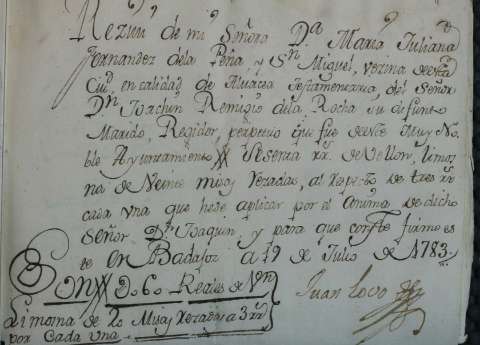 Rezivi de mi Señora Da. Maria Juliana
Fernandez dela Peña y Sn. Miguel, vezina de esta
Ciud, en calidad de Alvacea Testamentaria, del Señor
Dn. Joachin Remigio dela Rocha su difunto
Marido, Rejidor, perpetuo que fue de este Muy No
ble Ayuntamiento Sesenta rr. de Vellon, limos
na de Veinte misas Rezadas, al respecto de tres rr
cada una que hize aplicar por el Anima de dicho
Señor Dn. Joaquin, y para que conste firmo es
te en Badajoz a 19 de Julio de 1783.
Son 60 Reales de Vn
Limosna de 20 Misas Rezadas a 3 rr
por Cada una
Juan Lovo